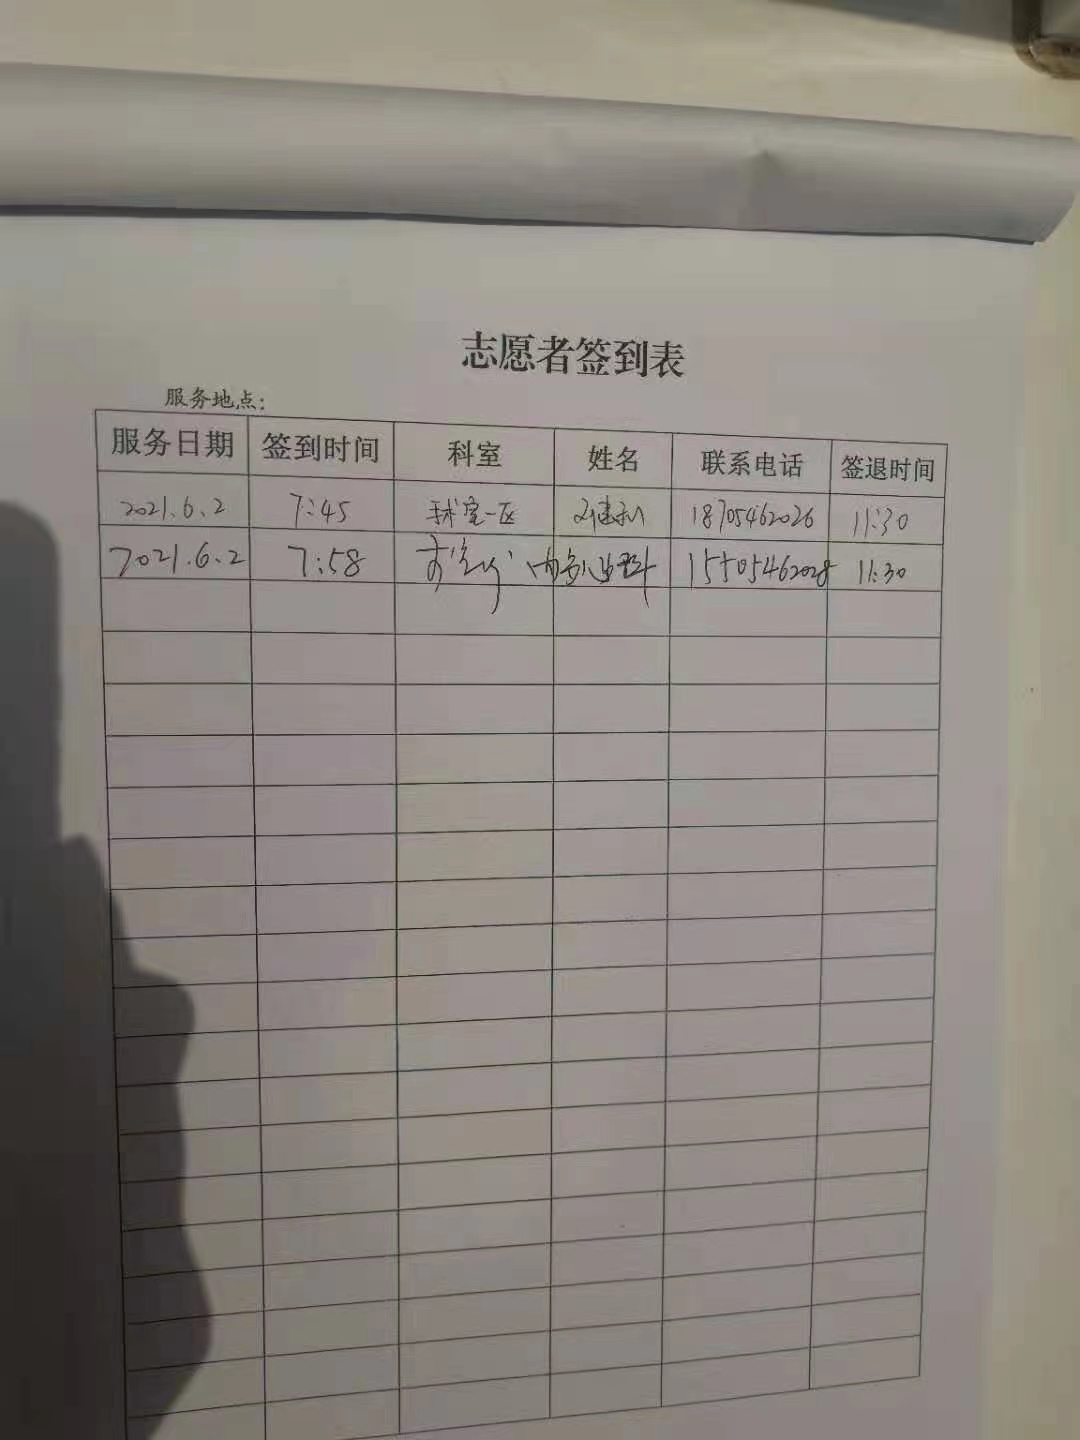 志愿者签到表
服务地点:
服务日期 签到时间 科室 姓名 联系电话 签退时间
2021.6.2 7:45 一区 18705462026 11:30
2021.6.2 7:58 15505462028 11:30